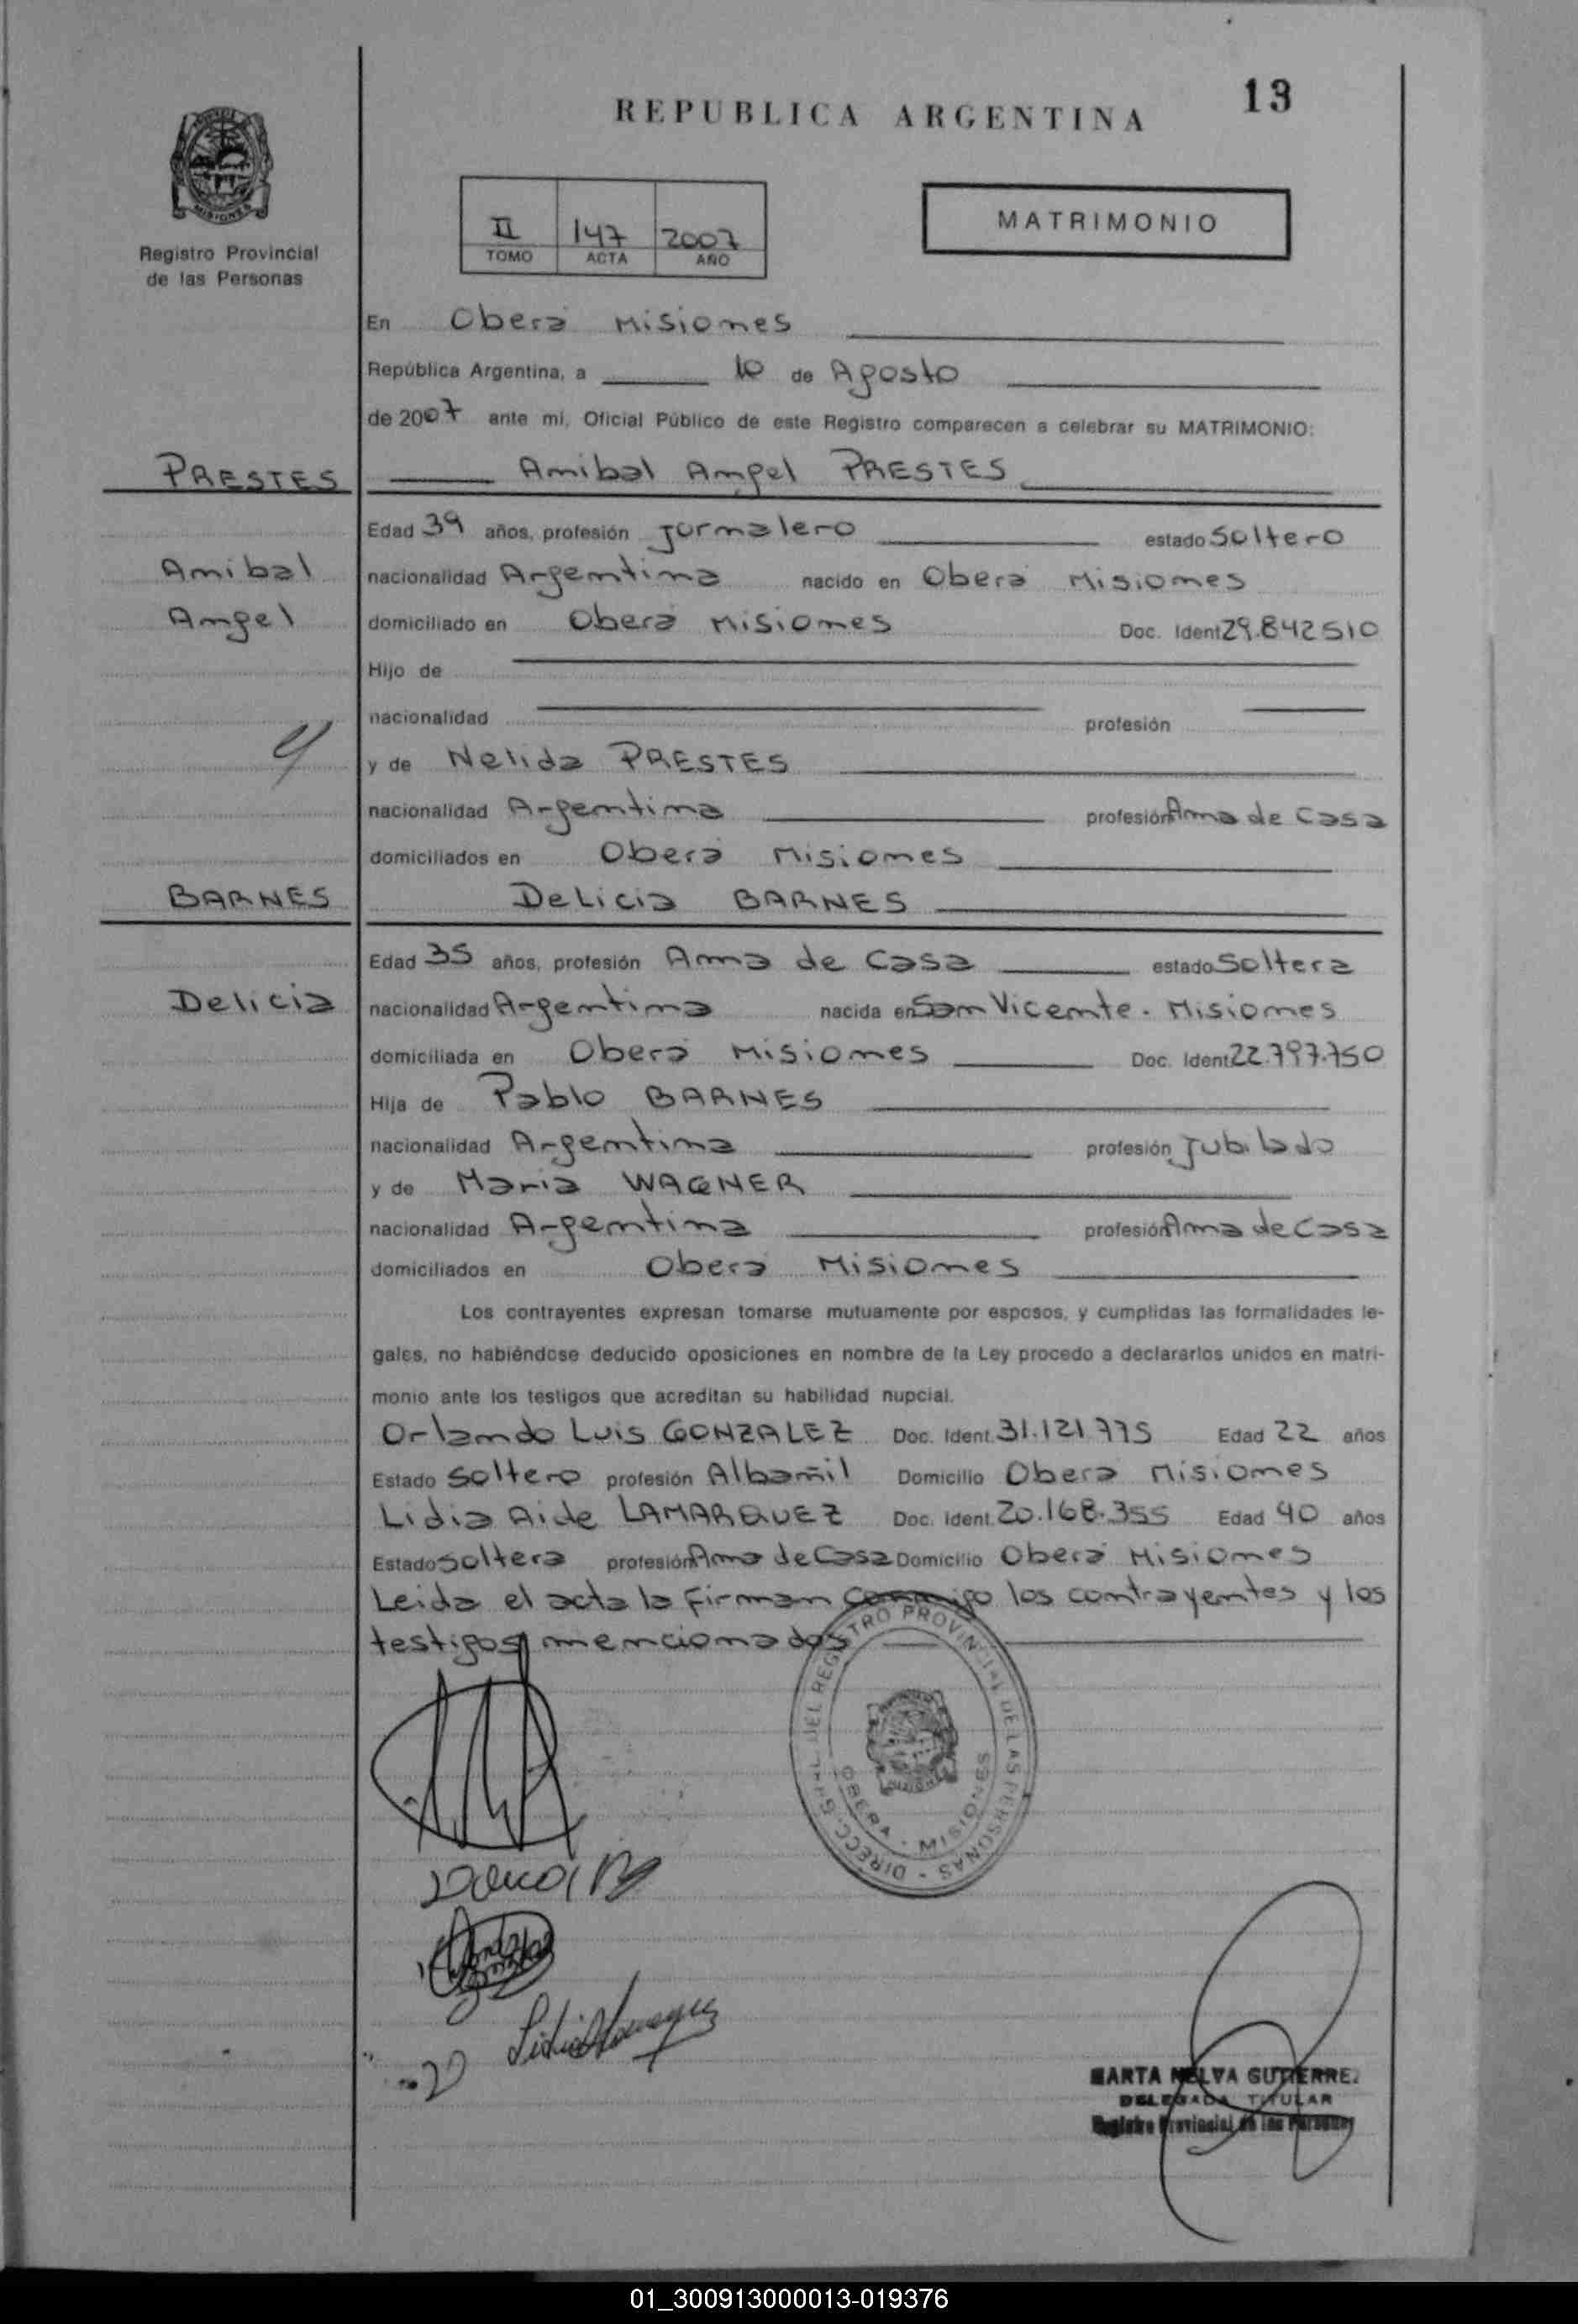 13
REPUBLICA ARGENTINA
MISIONES
Registro Provincial
de las Personas
II 147 2007
TOMO ACTA AÑO
MATRIMONIO
En Oberá Misiones
República Argentina, a 10 de Agosto
de 2007 ante mí, Oficial Público de este Registro comparecen a celebrar su MATRIMONIO:
PRESTES Anibal Angel PRESTES
Edad 39 años, profesión Jornalero estado Soltero
Anibal nacionalidad Argentina nacido en Oberá Misiones
Angel domiciliado en Oberá Misiones Doc. Ident 29.842510
Hijo de
nacionalidad profesión
y
y de Nelida PRESTES
nacionalidad Argentina profesión Ama de Casa
domiciliados en Oberá Misiones
BARNES Delicia BARNES
Edad 35 años, profesión Ama de Casa estado Soltera
Delicia nacionalidad Argentina nacida en San Vicente. Misiones
domiciliada en Oberá Misiones Doc. Ident 22.797.750
Hija de Pablo BARNES
nacionalidad Argentina profesión Jubilado
y de Maria WAGNER
nacionalidad Argentina profesión Ama de Casa
domiciliados en Oberá Misiones
Los contrayentes expresan tomarse mutuamente por esposos, y cumplidas las formalidades le-
gales, no habiéndose deducido oposiciones en nombre de la Ley procedo a declararlos unidos en matri-
monio ante los testigos que acreditan su habilidad nupcial.
Orlando Luis GONZALEZ Doc. Ident. 31.121.775 Edad 22 años
Estado Soltero profesión Albañil Domicilio Oberá Misiones
Lidia Aide LAMARQUEZ Doc. Ident. 20.168.355 Edad 40 años
Estado Soltera profesión Ama de Casa Domicilio Oberá Misiones
Leida el acta la firman conmigo los contrayentes y los
testigos mencionados
DIRECC. GRAL. DEL REGISTRO PROVINCIAL DE LAS PERSONAS -
OBERA - MISIONES
MARTA NELVA GUTIERREZ
DELEGADA TITULAR
Registro Provincial de las Personas
01_300913000013-019376